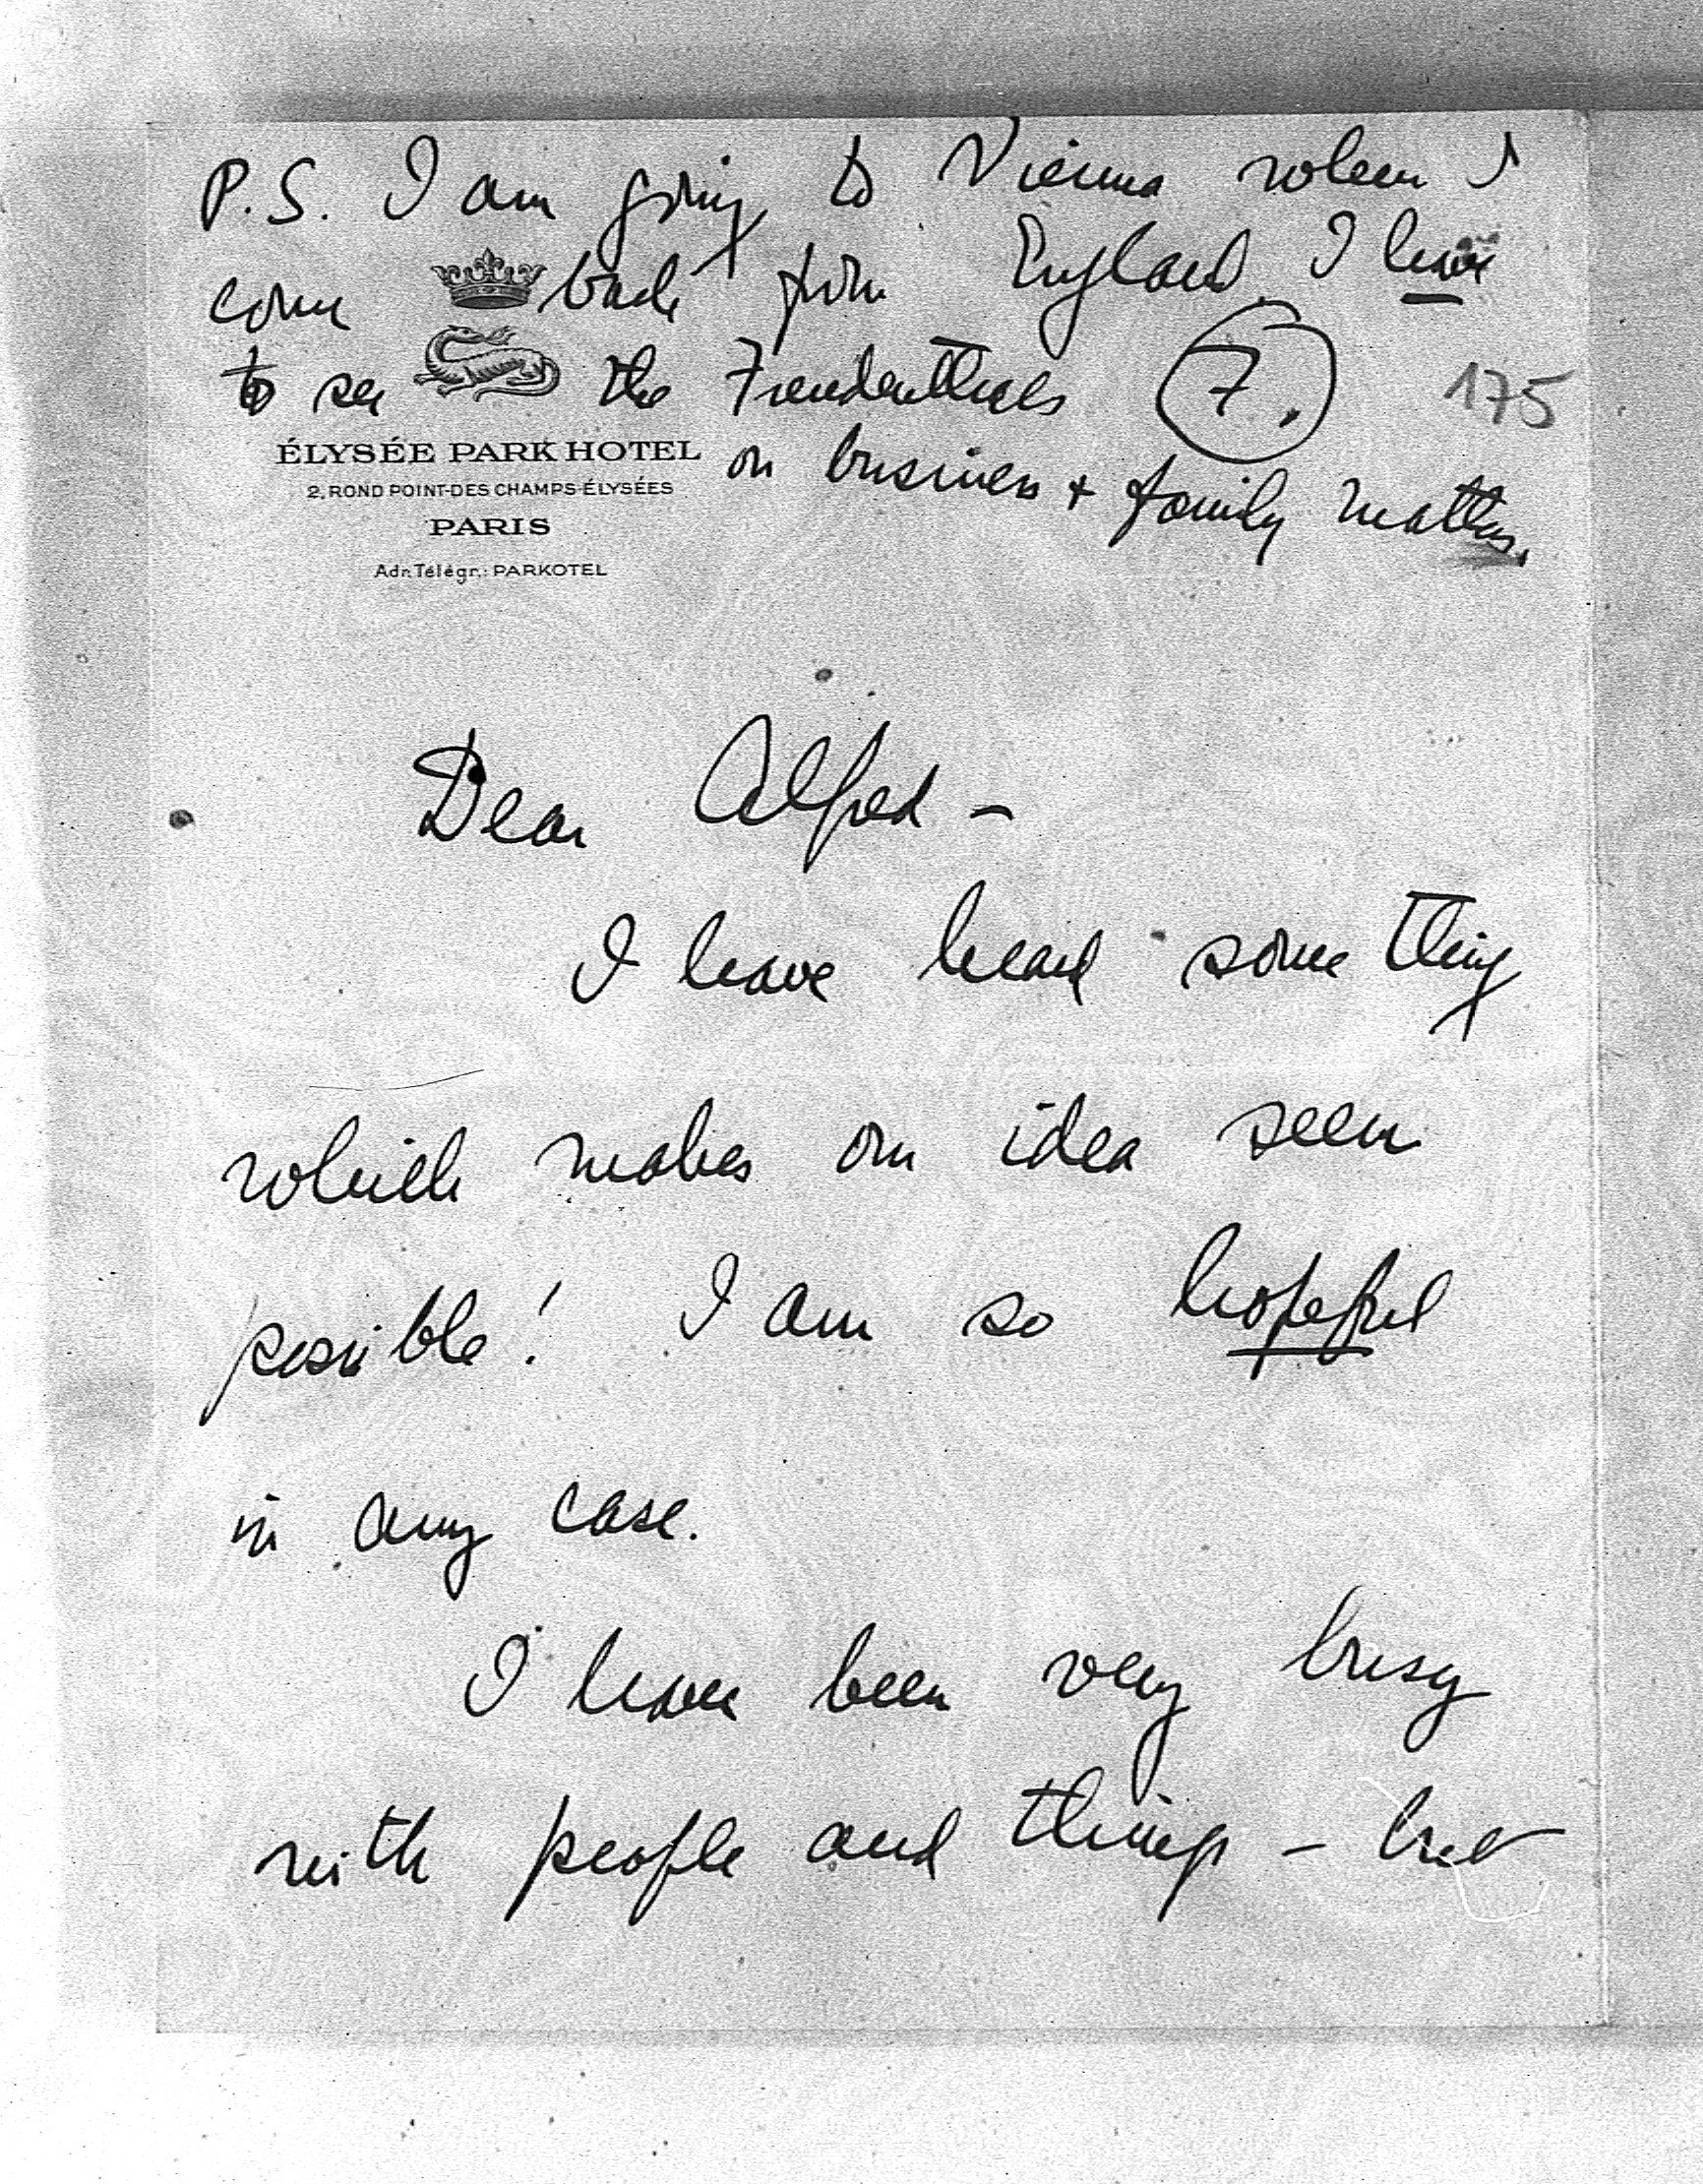 P.S. I am going to Vienna when I
come back from England I have
to see the Freudenthals 7. 175
on business + family matters.
ÉLYSÉE PARK HOTEL
2, ROND POINT-DES CHAMPS-ÉLYSÉES
PARIS
Adr. Télégr.: PARKOTEL
Dear Alfred –
I have heard something
which makes our idea seem
possible! I am so hopeful
in any case.
I have been very busy
with people and things – but